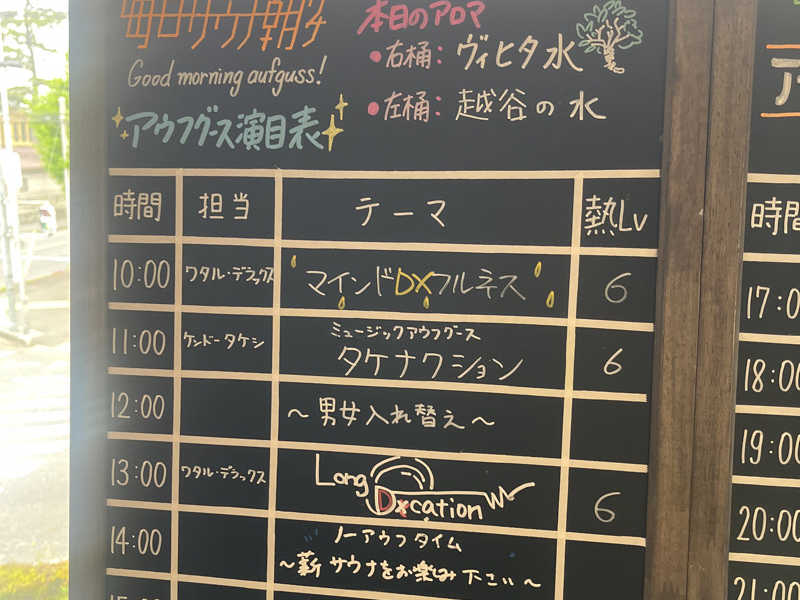 毎日サウナ朝から
Good morning aufguss!
アウフグース演目表
本日のアロマ
・右桶：ヴィヒタ水
・左桶：越谷の水
時間 担当 テーマ 熱Lv
10:00 ワタル・デラックス マインドDXフルネス 6
11:00 ケンドータケシ ミュージックアウフグース
タケナクション 6
12:00 〜男女入れ替え〜
13:00 ワタル・デラックス Long
Dxcation 6
14:00 ノーアウフタイム
〜薪サウナをお楽しみ下さい〜
時間
17:0
18:00
19:00
20:00
21:00